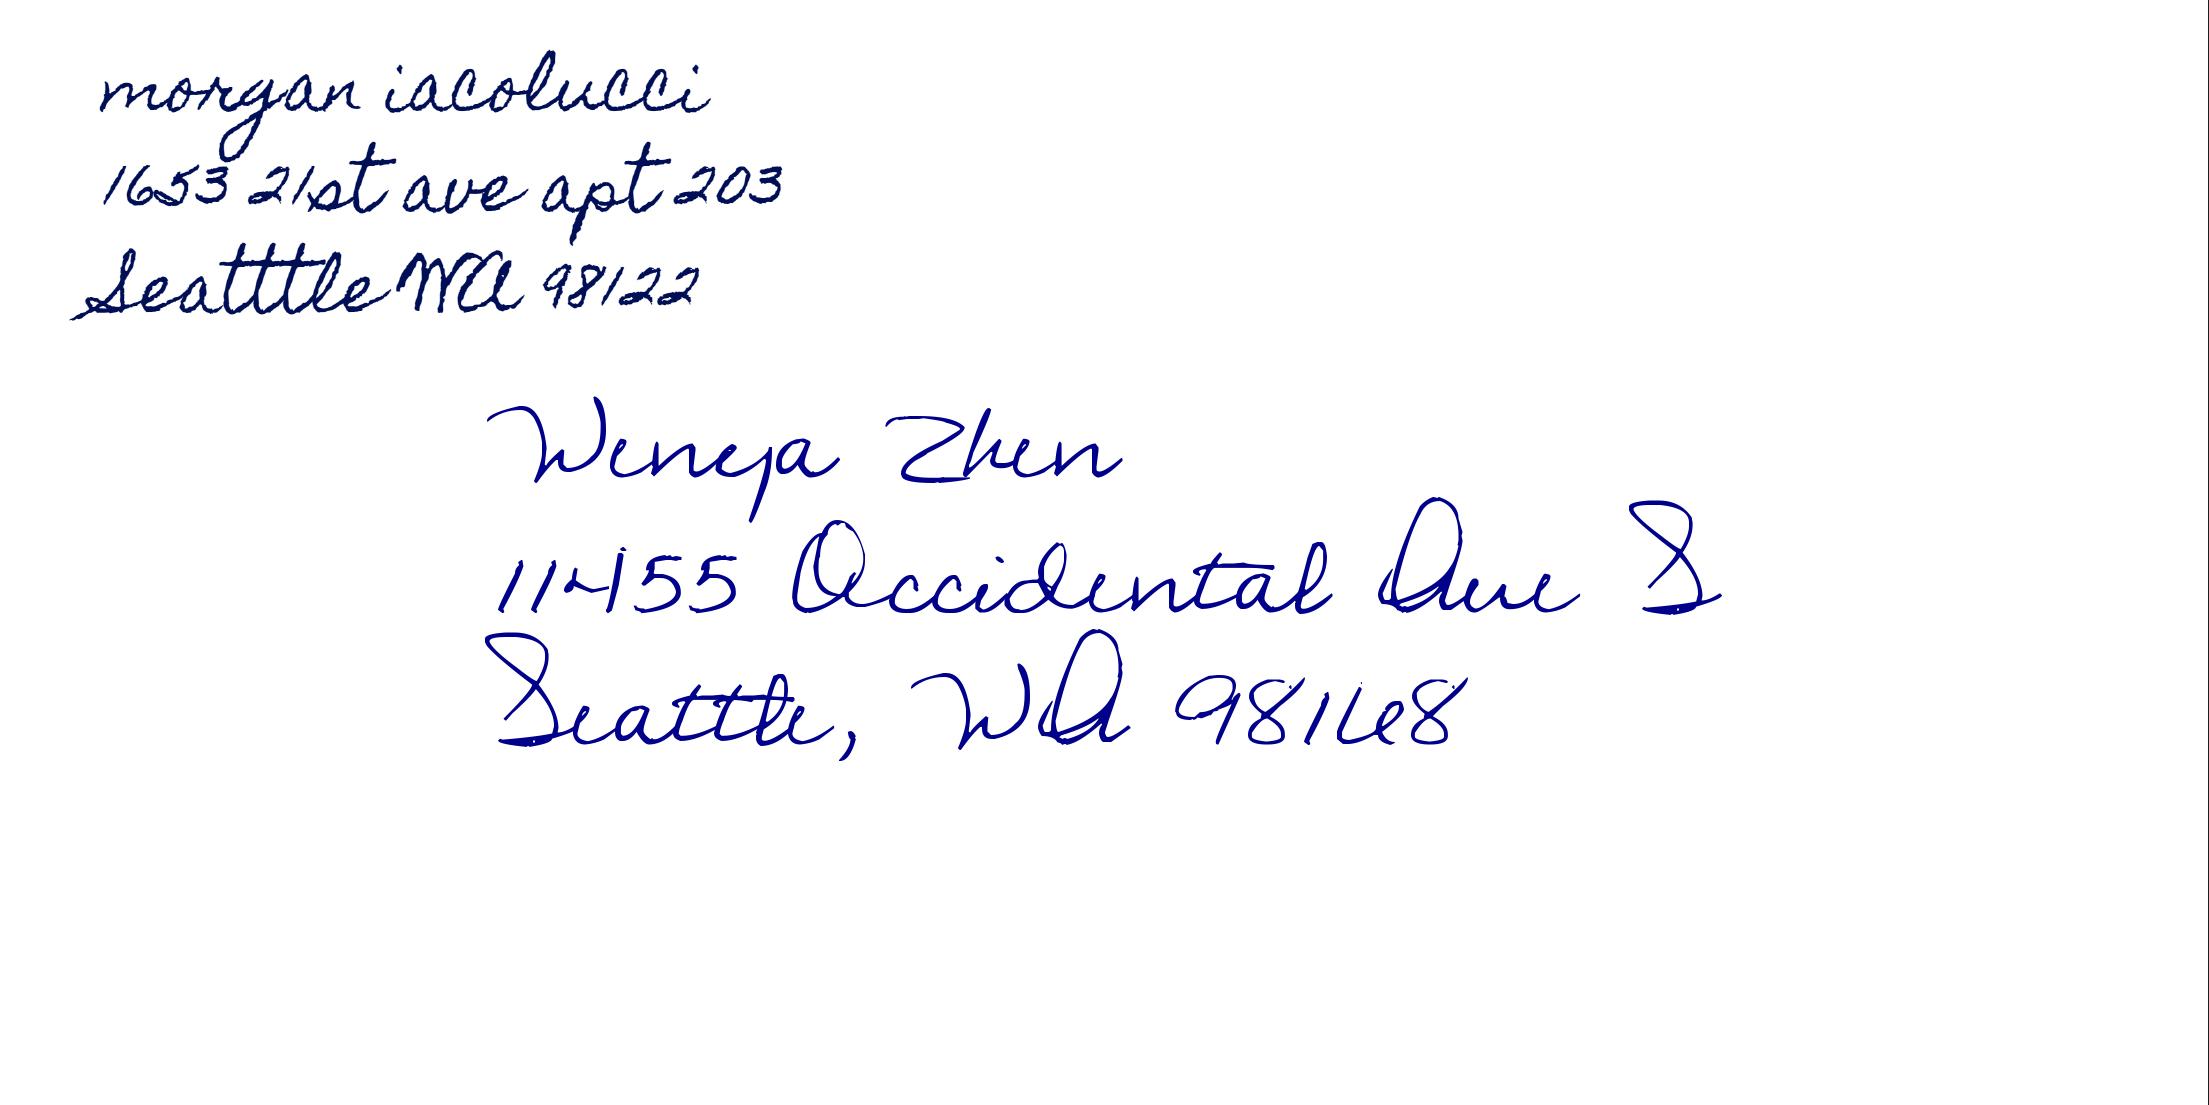 morgan iacolucci
1653 21st ave apt 203
Seatttle WA 98122
Wenya Zhen
11455 Occidental Ave S
Seattle, WA 98168